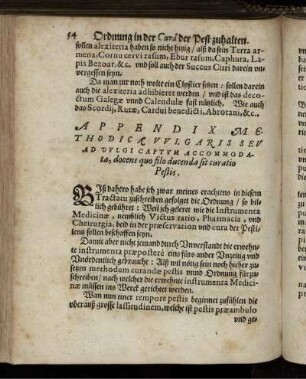 54 Ordnung in der Cura der Pest zuhalten.
sollen alexiteria haben so nicht hitzig / alß da sein Terra ar-
mena / Cornu cervi rasum, Ebur rasum, Caphura, La-
pis Bezoar, &c. und soll auch der Succus Citri darein un-
vergessen seyn.
Da man zur noch wolte ein Clystier setzen: sollen darein
auch die alexiteria adhibieret werden / und ist das deco-
ctum Galegæ unnd Calendulæ fast nützlich. Wie auch
das Scordij, Rutæ, Cardui benedicti, Abrotani, &c..
APPENDIX ME-
THODICÆ VVLGARIS SEV
AD VVLGI CAPTVM ACCOMMODA-
ta, docens quo filo ducenda sit curatio
Pestis.
BIß dahero habe ich zwar meines erachtens in diesem
Tractatu zuschreiben gefolget die Ordnung / so bil-
lich gebühret: Weil ich geleret wie die Instrumenta
Medicinæ, nemblich Victus ratio, Pharmacia, und
Cheirurgia, beid in der præservation und cura der Pesti/
sons sollen beschaffen seyn.
Damit aber nicht jemand durch Unverstandt die erwehn-
te instrumenta præposterè eins fürs ander Unzeitig und
Unordentlich gebrauche: Alß wil nötig sein noch hieher zu-
setzen methodum curandæ pestis unnd Ordnung fürzu-
schreiben / nach welcher die erwehnte instrumenta Medici-
næ müssen ins Werck gerichtet werden.
Wan nun einer tempore pestis beginnet zufühlen die
uberauß grosse lassitudinem, welche ist pestis præambulo
und ge-